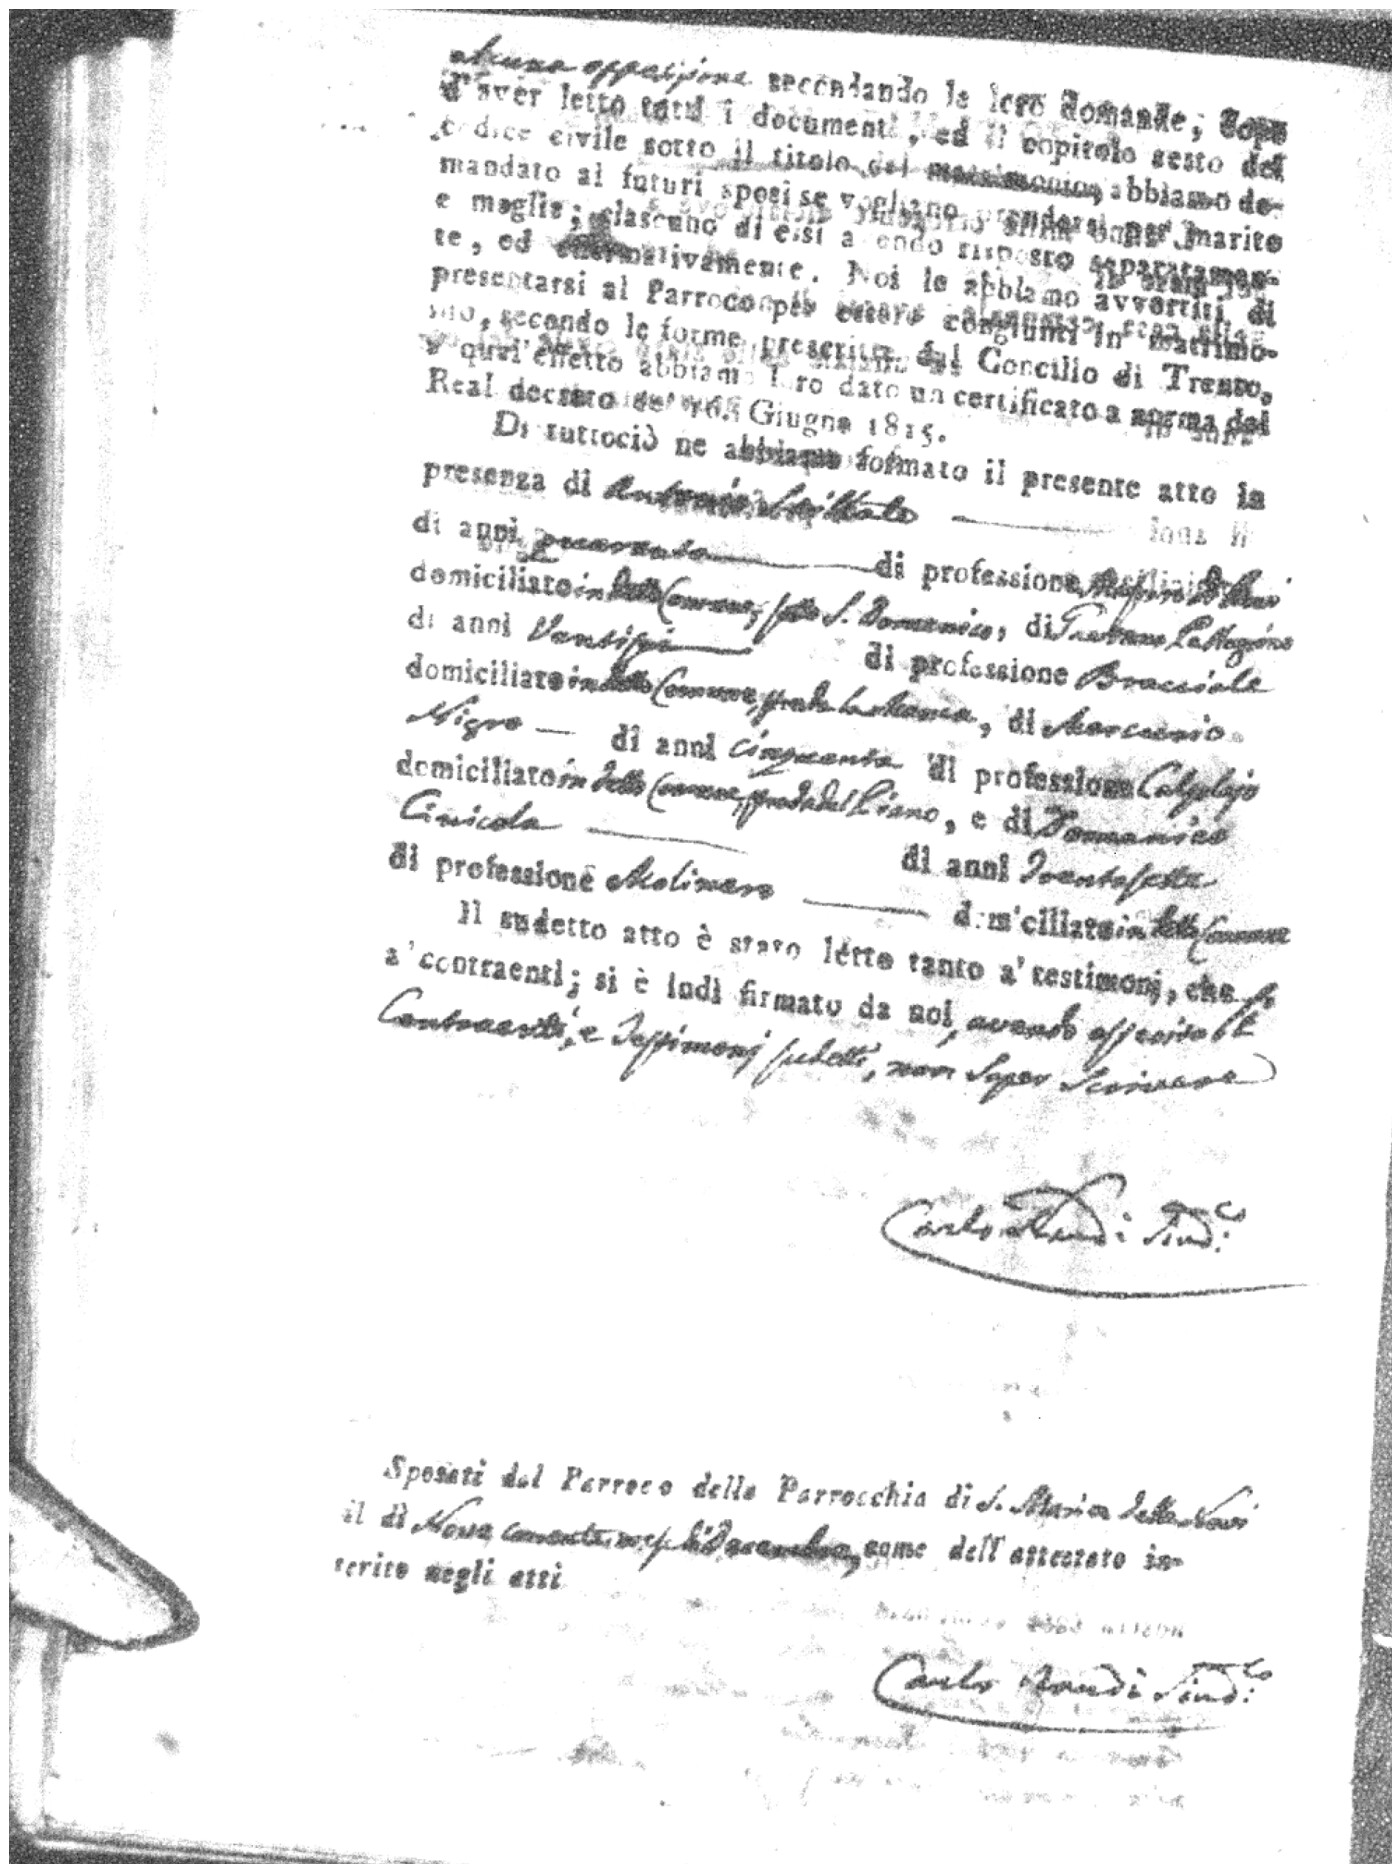 alcuna opposizione secondando le loro domande; dopo
d'aver letto tutti i documenti, ed il copitolo sesto del
codice civile sotto il titolo del matrimonio, abbiamo do-
mandato ai futuri sposi se vogliano prendersi per marito
e moglie; ciascuno di essi a endo risposto separatamen-
te, ed affermativamente. Noi le abbiamo avvertiti di
presentarsi al Parroco per essere congiunti in matrimo-
nio, secondo le forme prescritte dal Concilio di Trento,
a qual'effetto abbiamo loro dato un certificato a norma del
Real decreto de' 16. Giugno 1815.
Di tuttociò ne abbiamo formato il presente atto in
presenza di Antonio
di anni quaranta di professione
domiciliato in detto Comune, S. Domenico, di
di anni Ventisei di professione Bracciale
domiciliato in detto Comune, strada la, di
Nigro — di anni cinquanta di professione Calzolajo
domiciliato in detto Comune, strada del Piano, e di Domenico
Cinicola di anni Trentasette
di professione Molinaro domiciliato in detto Comune
Il sudetto atto è stato letto tanto a' testimonj, che
a' contraenti; si è indi firmato da noi, avendo asserito li
Contraenti, e Testimonj sudetti, non saper scrivere
Carlo Sind.co
Sposati dal Parroco della Parrocchia di S. Maria della
il dì Nove corrente mese di Decembre, come dell'attestato in-
serito negli atti
Carlo Sind.co